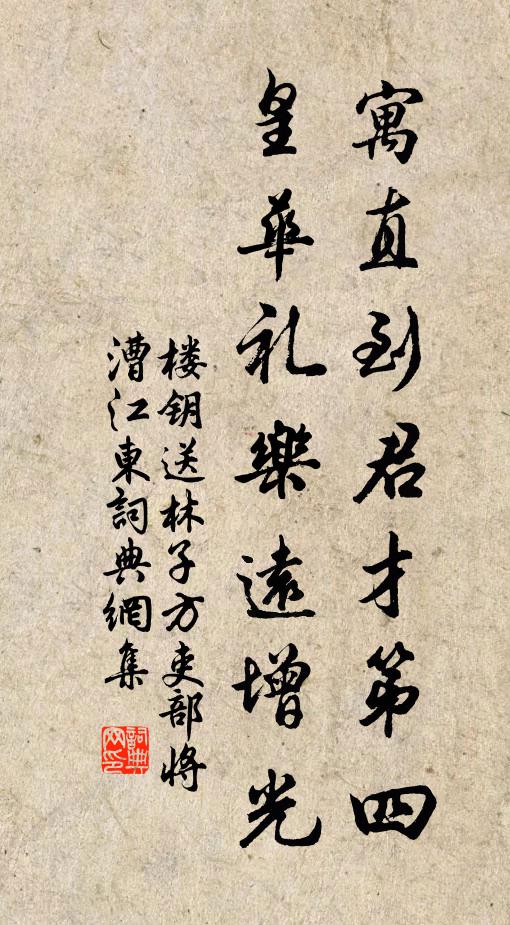 寓直到君才第四
皇华礼樂遠增光
楼钥送林子方吏部将
漕江東詞典網集
詞典
网印